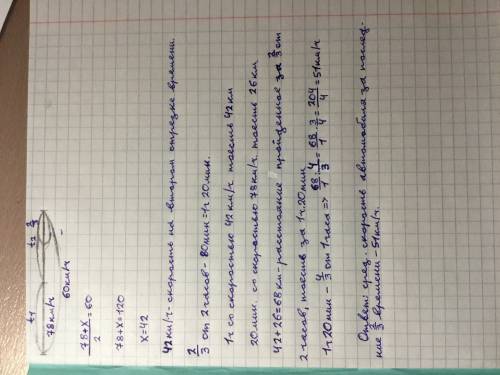 t1 t2 2/3
78км/ч
60км/ч
78+x/2=60
78+x=120
x=42
42км/ч-скорость на втором отрезке времени.
2/3 от 2 часов-80мин=1ч 20мин.
1ч со скоростью 42км/ч тоесть 42км
20мин. со скоростью 78км/ч. тоесть 26км
42+26=68км-расстояние пройденное за 2/3 от
2 часов, тоесть за 1ч.20мин
1ч 20мин - 4/3 от 1 часа => 68/1 : 4/3 = 68/1 · 3/4 = 204/4 = 51км/ч
Ответ: сред. скорость автомобиля за послед-
ние 2/3 времени-51км/ч.